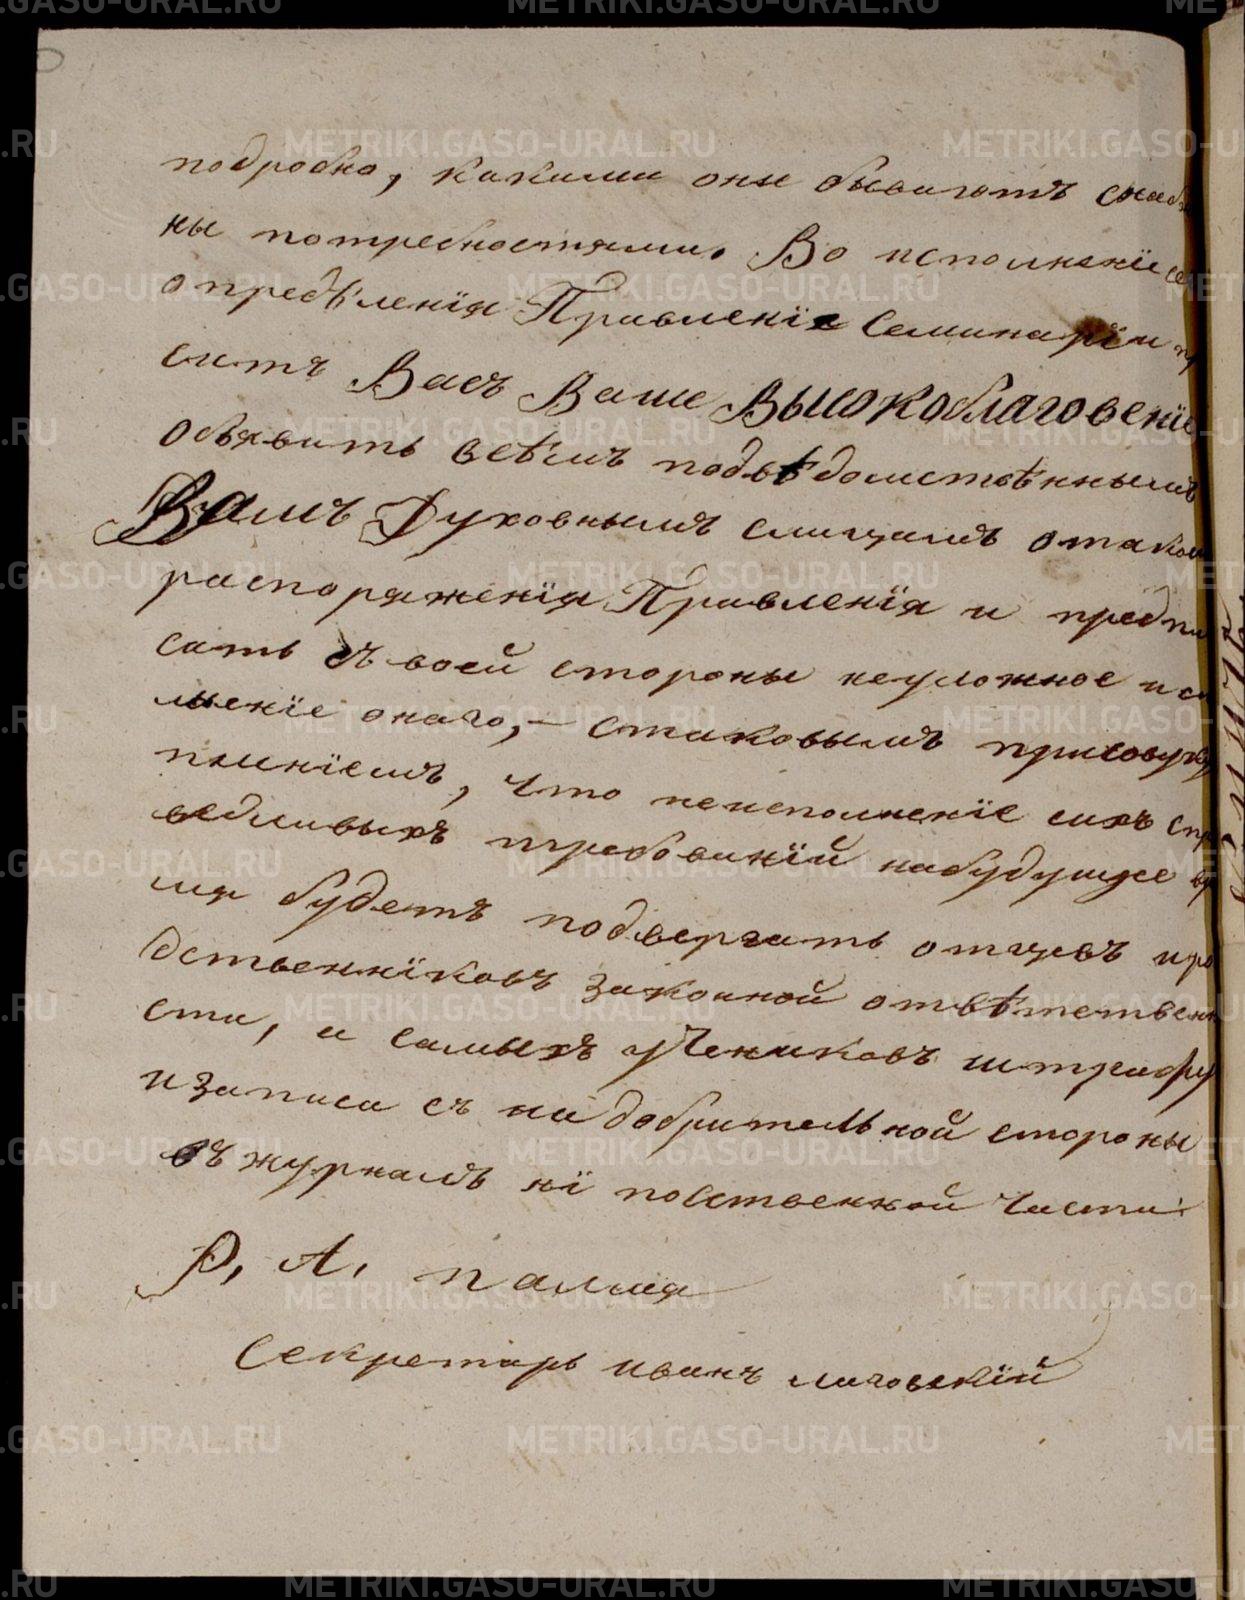 подробно, какими они бываютъ снаб
ны потребностями. Во исполненіе се
опредѣленія Правленіе Семинаріи пр
ситъ Васъ Ваше Высокоблаговеніе
объявить всѣмъ подвѣдомствѣннымъ
Вамъ Духовнымъ лицамъ отаком
распоряженія Правленія и предпи
сать съ воей стороны неуложное исп
лненіе онаго, — стаковымъ присовуку
пленіемъ, что неисполненіе сихъ спр
ведливыхъ требованій набудущее вр
мя будетъ подвергать отцевъ иро
дственніковъ законной отвѣтствен
сти, и самыхъ учениковъ штрафу
изаписи съ не добрительной стороны
въ журналъ ні повственной части.
Р, А, палмя
Секретарь иванъ маговскій